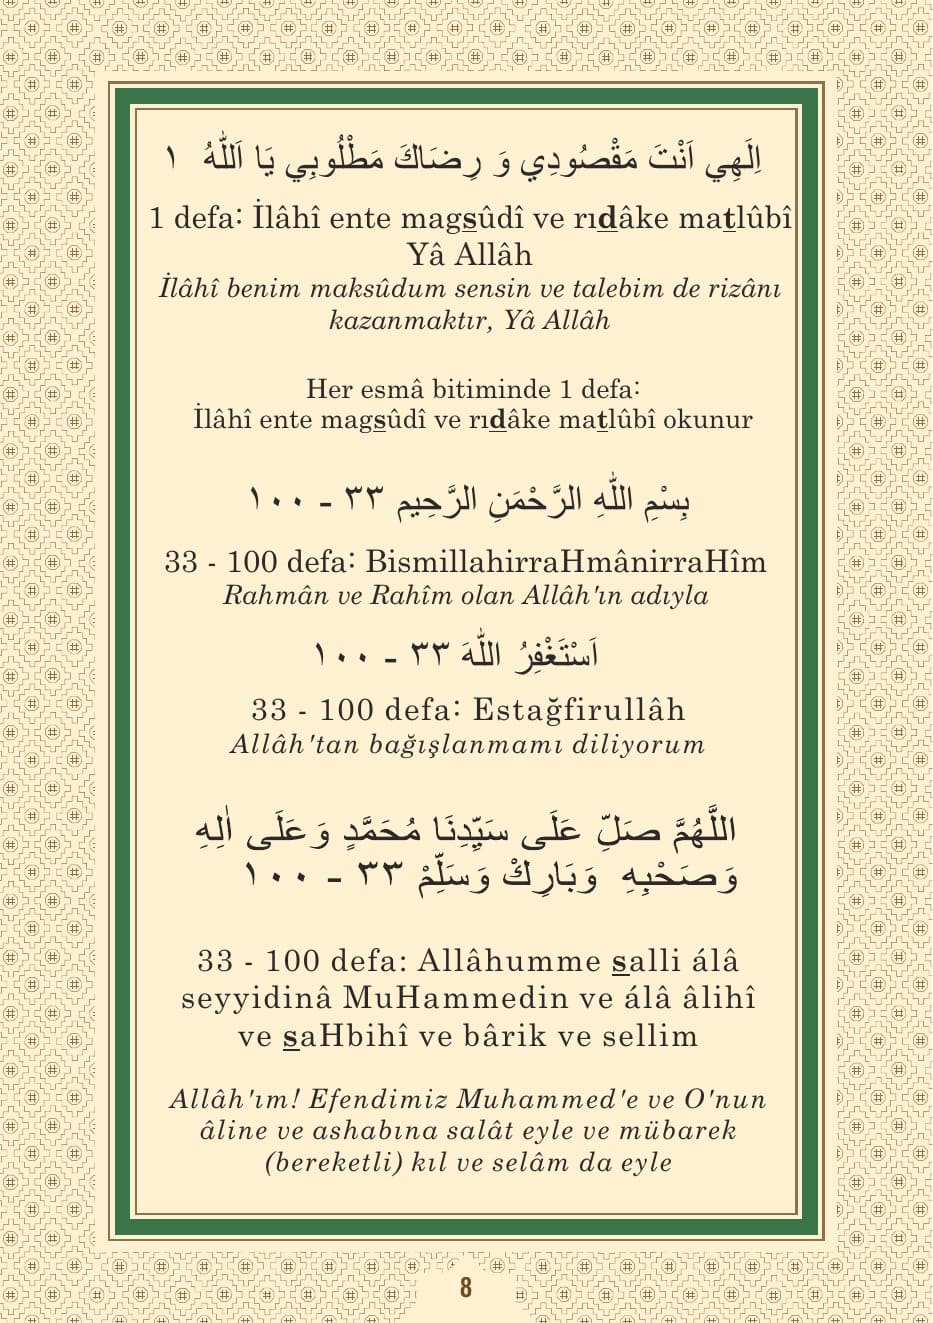 اِلَهِي اَنْتَ مَقْصُودِي وَ رِضَاكَ مَطْلُوبِي يَا اَللّٰهُ ١
1 defa: İlâhî ente magsûdî ve rıdâke matlûbî
Yâ Allâh
İlâhî benim maksûdum sensin ve talebim de rizânı
kazanmaktır, Yâ Allâh
Her esmâ bitiminde 1 defa:
İlâhî ente magsûdî ve rıdâke matlûbî okunur
بِسْمِ اللّٰهِ الرَّحْمَنِ الرَّحِيم ٣٣ - ١٠٠
33 - 100 defa: BismillahirraHmânirraHîm
Rahmân ve Rahîm olan Allâh'ın adıyla
اَسْتَغْفِرُ اللّٰهَ ٣٣ - ١٠٠
33 - 100 defa: Estağfirullâh
Allâh'tan bağışlanmamı diliyorum
اللَّهُمَّ صَلِّ عَلَى سَيِّدِنَا مُحَمَّدٍ وَعَلَى اٰلِهِ
وَصَحْبِهِ وَبَارِكْ وَسَلِّمْ ٣٣ - ١٠٠
33 - 100 defa: Allâhumme salli álâ
seyyidinâ MuHammedin ve álâ âlihî
ve saHbihî ve bârik ve sellim
Allâh'ım! Efendimiz Muhammed'e ve O'nun
âline ve ashabına salât eyle ve mübarek
(bereketli) kıl ve selâm da eyle
8